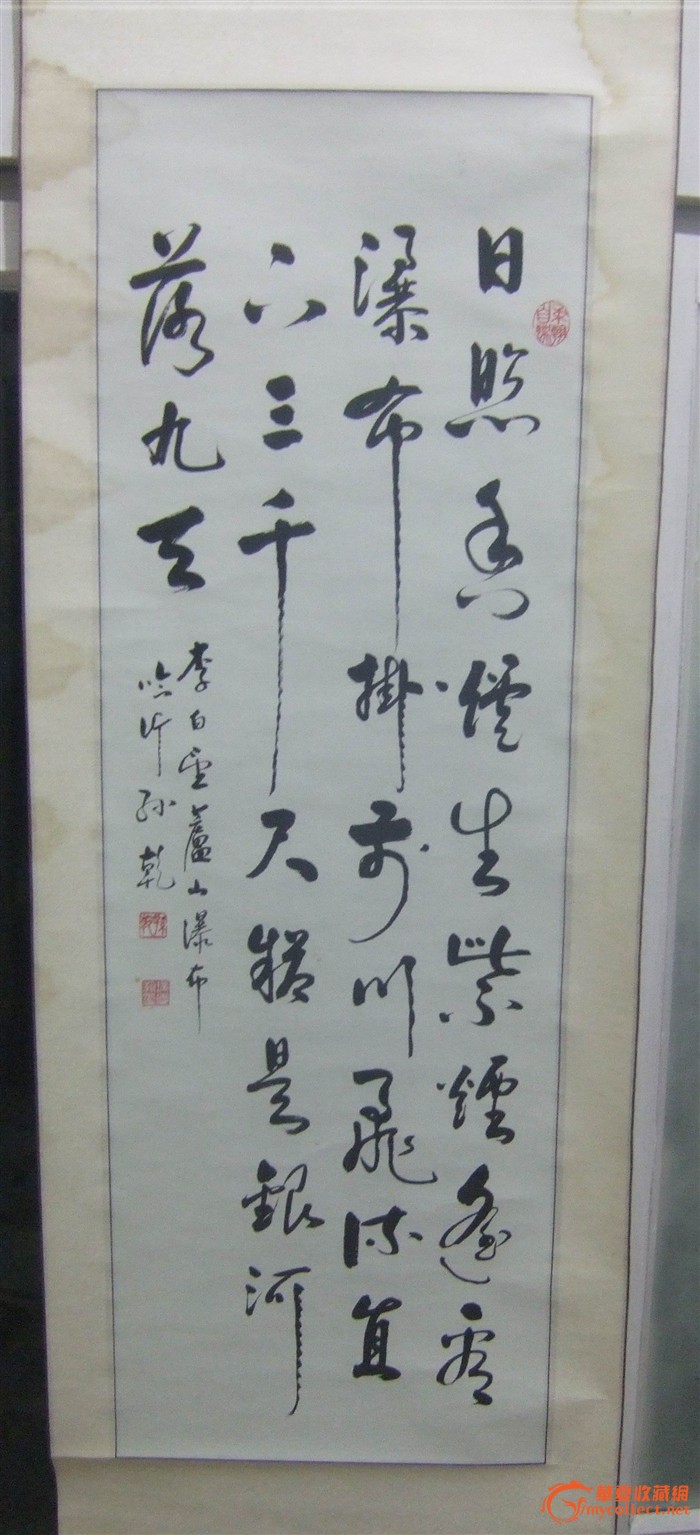 日照香爐生紫煙遙看
瀑布掛前川飛流直
下三千尺疑是銀河
落九天
李白望廬山瀑布
孫乾
華夏收藏網
mycollect.com